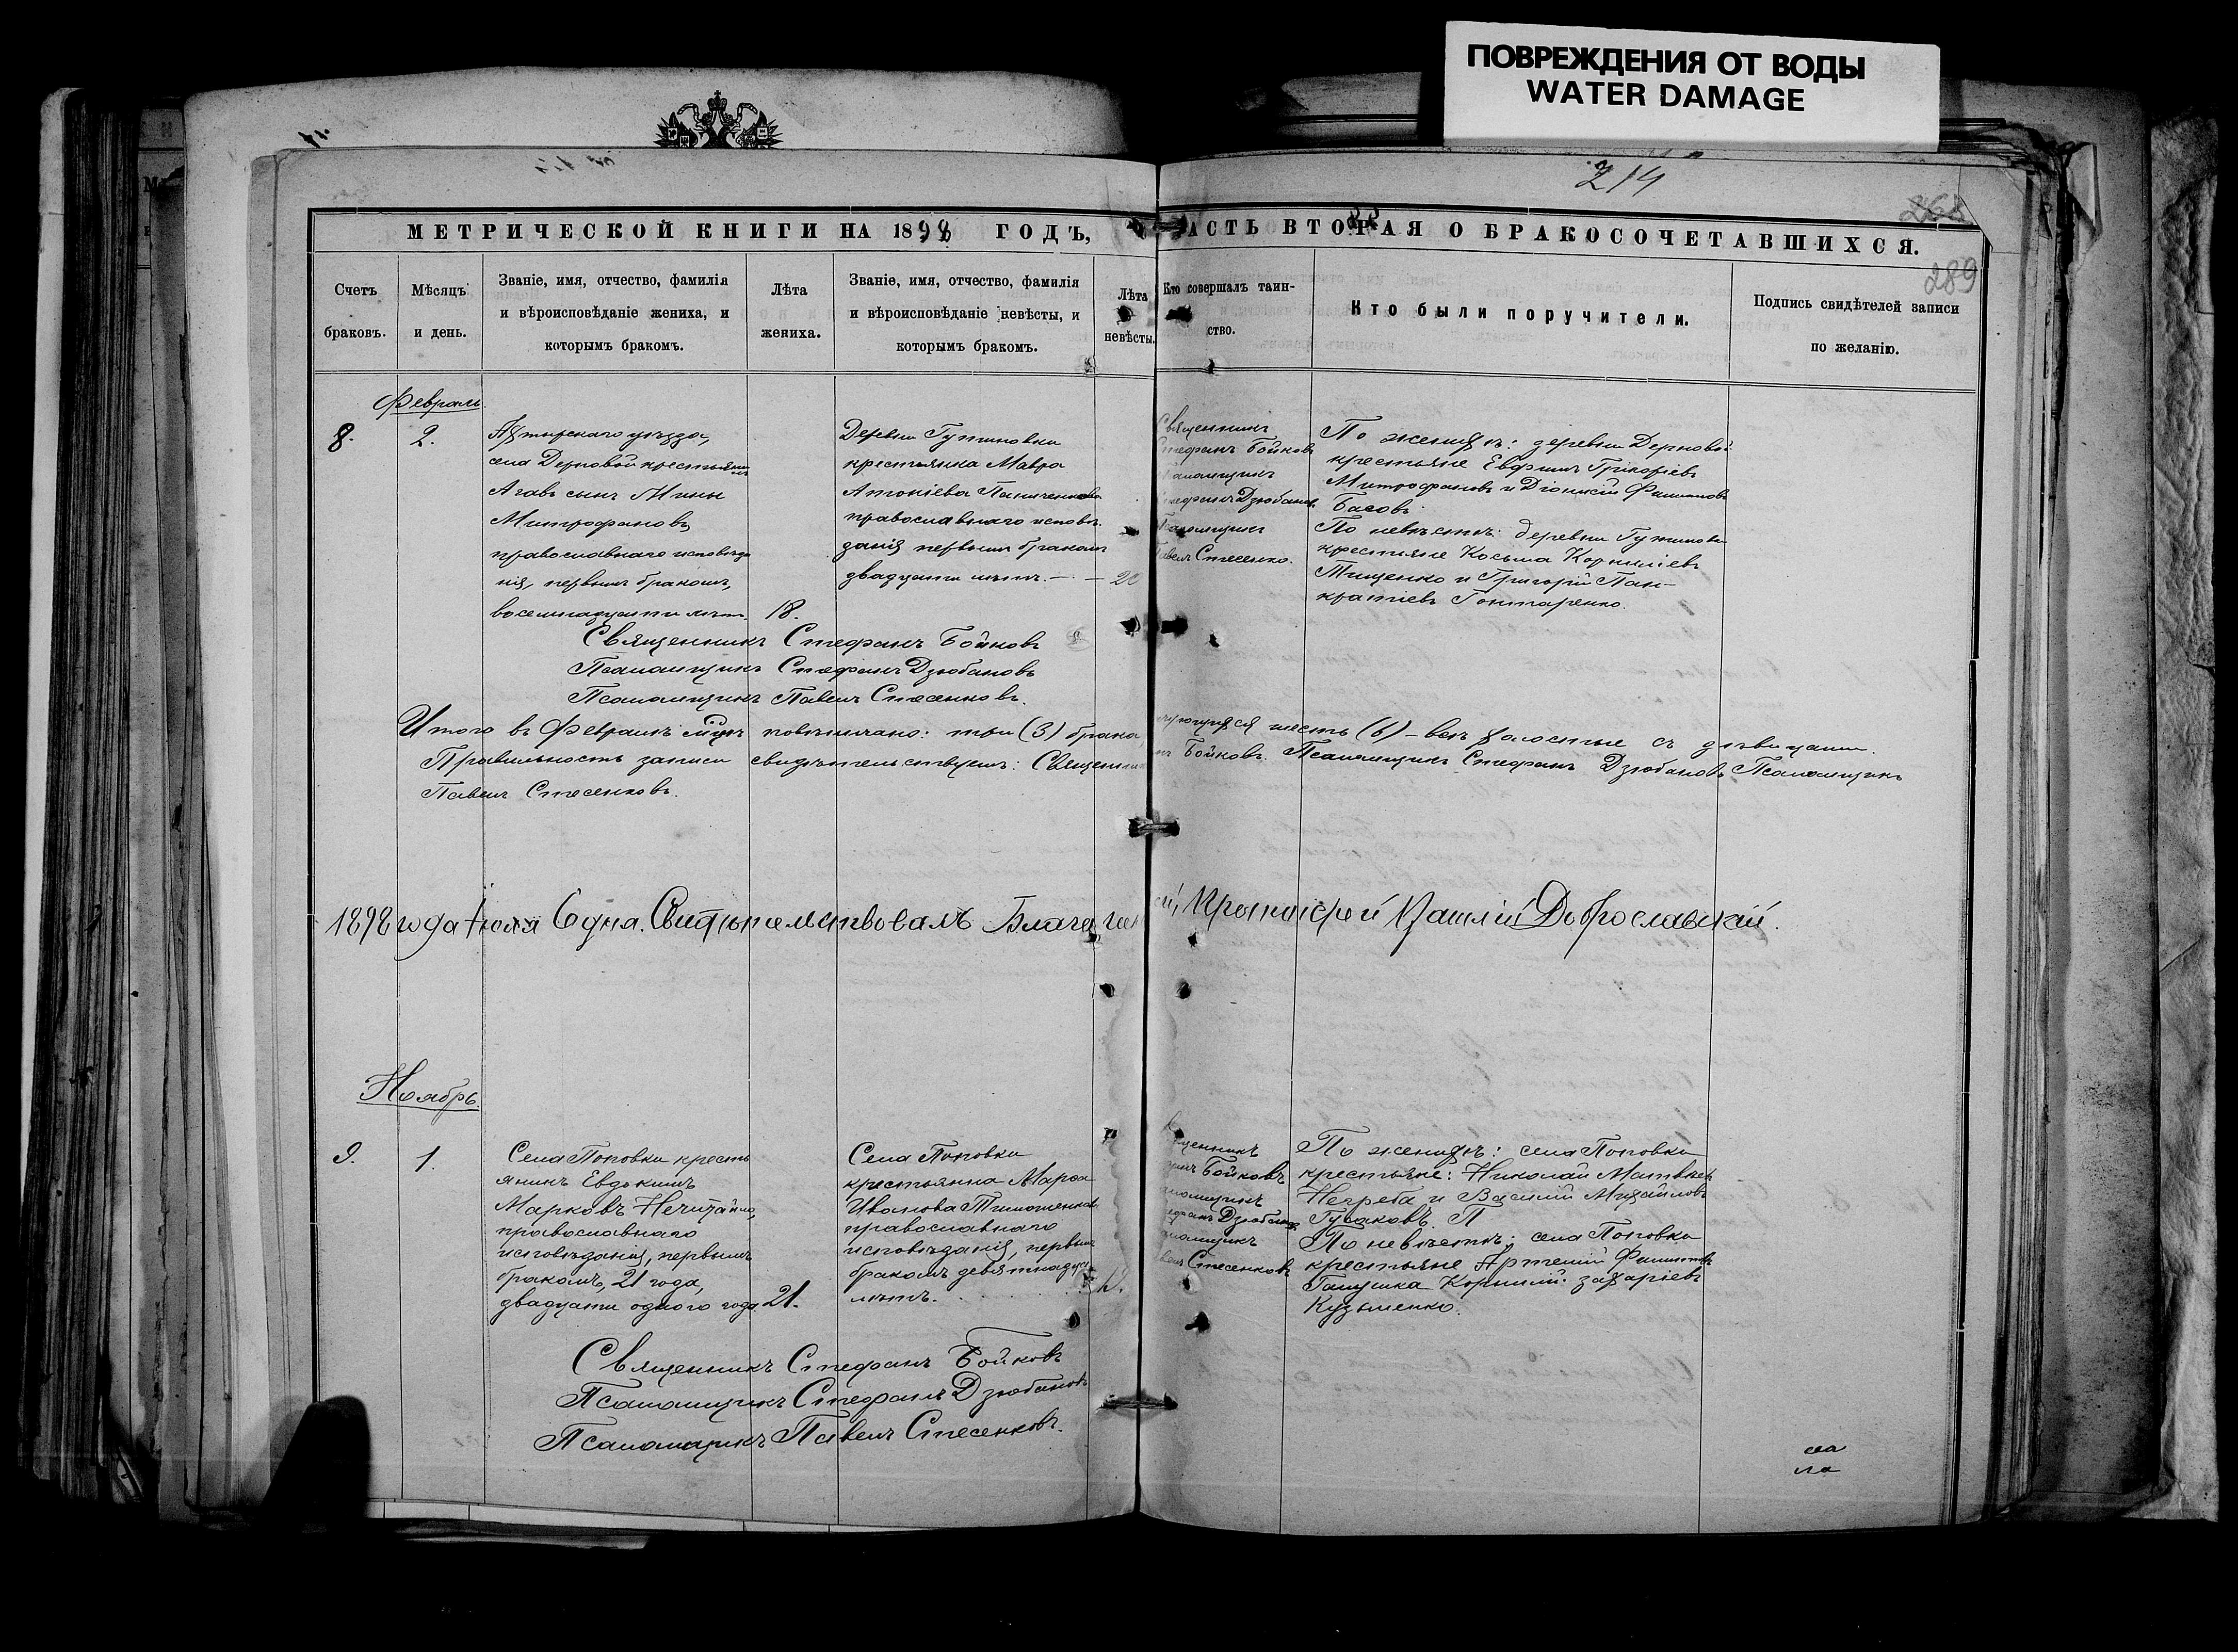 ПОВРЕЖДЕНИЯ ОТ ВОДЫ
WATER DAMAGE
214
289
МЕТРИЧЕСКОЙ КНИГИ НА 1898 ГОДЪ,
АСТЬ ВТОРАЯ О БРАКОСОЧЕТАВШИХСЯ.
Счетъ
браковъ.
Мѣсяцъ
и день.
Званіе, имя, отчество, фамилія
и вѣроисповѣданіе жениха, и
которымъ бракомъ.
Лѣта
жениха.
Званіе, имя, отчество, фамилія
и вѣроисповѣданіе невѣсты, и
которымъ бракомъ.
Лѣта
невѣсты.
Кто совершалъ таин-
ство.
Кто были поручители.
Подпись свидѣтелей записи
по желанію.
Февраль.
8.
2.
уѣзда,
села Дерновой крестьянинъ
сынъ Мины
Митрофановъ
православнаго исповѣда
нія, первымъ бракомъ,
восемнадцати лѣтъ.
18.
Деревни Гутниновки
крестьянка Мавра
Антоніева
православнаго исповѣ-
данія первымъ бракомъ
двадцати лѣтъ. —
20
Священникъ
Стефанъ Бойковъ
Стефанъ Дзюбановъ
Стесенко.
По женихѣ: деревни Дерновой
крестьяне Евфимъ
Митрофановъ и Діонисій Филиповъ
Басовъ.
По невѣстѣ: деревни
крестьяне Косьма Корниліевъ
Тищенко и Григорій Пан-
кратіевъ Гонтаренко.
Священникъ Стефанъ Бойковъ
Псаломщикъ Стефанъ Дзюбановъ
Псаломщикъ Павелъ Стесенковъ.
Итого въ Февралѣ мцѣ повѣнчано: три (3) брака
шесть (6) – всѣ холостые съ дѣвицами.
Правильность записи свидѣтельствуемъ: Священникъ
Бойковъ. Псаломщикъ Стефанъ Дзюбановъ Псаломщикъ
Павелъ Стесенковъ.
1898 года Іюля 6 дня. Свидѣтельствовалъ
Доброславскій.
Ноябрь.
9.
1.
Села Поповки кресть
янинъ Евдокимъ
Марковъ Нечитайло,
православнаго
исповѣданія, первымъ
бракомъ, 21 года,
двадцати одного года
21.
Села Поповки
крестьянка Марѳа
Иванова Тимошенкова
православнаго
исповѣданія, первымъ
бракомъ девятнадца
лѣтъ.
Бойковъ
Дзюбановъ
Стесенковъ
По женихѣ: села Поповки
крестьяне: Николай Матвѣевъ
Негреба и Василій Михайловъ
Гусаковъ. П
По невѣстѣ: села Поповки
крестьяне Артемій Филиповъ
Галушка Корнилій Захаріевъ
Кузьменко.
Священникъ Стефанъ Бойковъ
Псаломщикъ Стефанъ Дзюбановъ
Псаломщикъ Павелъ Стесенковъ.